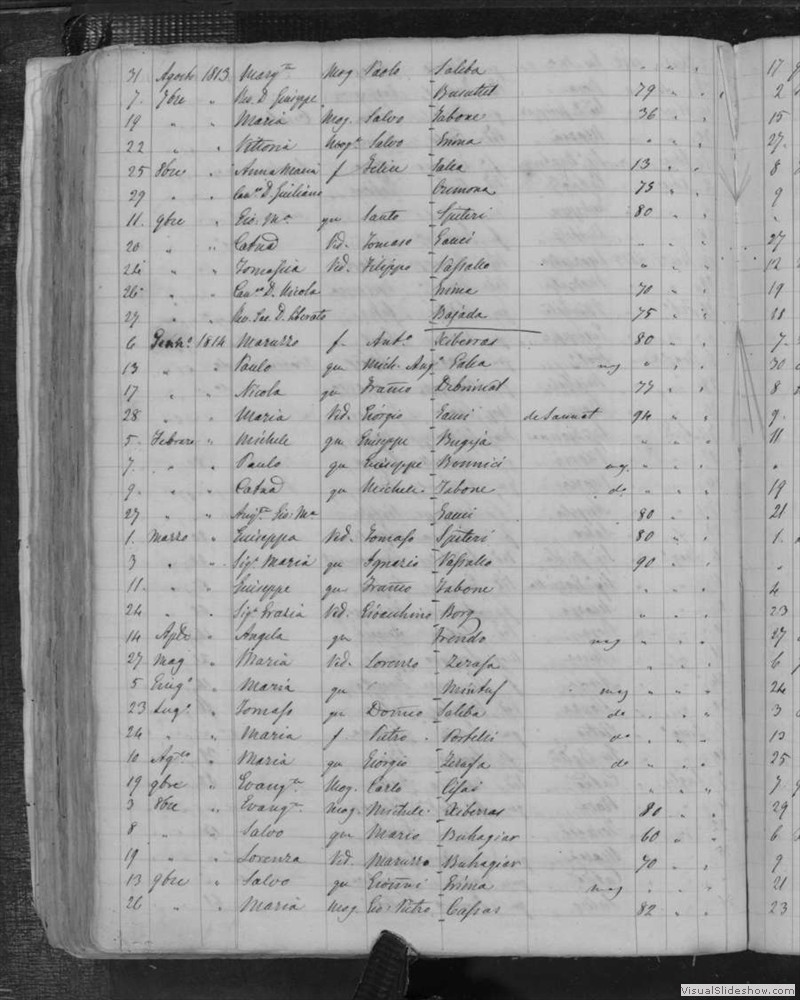 31 Agosto 1813 Marg.ta Mog Paolo Saliba " " "
7. 7bre " Rev. D. Giuseppe Busuttil 79 " "
19 " " Maria Mog. Salvo Tabone 36 " "
22 " " Vittoria Mog. Salvo Grima " " "
25 8bre " Anna Maria f Felice Galea 13 " "
29 " " Can.co D. Giuliano Cremona 73 " "
11. 9bre " Gio. Ma. qu Santo Spiteri 80 " "
20 " " Catnā Ved. Tomaso Gauci " " "
24 " " Tomasia Ved. Filippo Vassallo " " "
26 " " Can.co D. Nicola Grima 70 " "
27 " " Rev. Sac. D. Liberato Bajada 75 " "
6 Genn.o 1814 Maruzzo f. Ant.o Xiberras 80 " "
13 " " Paulo qu Mich. Ang.o Galea " " "
17 " " Nicola qu Franco Debrincat 77 " "
28 " " Maria Ved. Giorgio Gauci de Sannat 94 " "
5. Febraro " Michele qu Giuseppe Bugeja " " "
7. " " Paulo qu Giuseppe Bonnici " " "
9. " " Catnā qu Michele. Tabone do. " " "
27 " " Gio: Ma Gauci 80 " "
1. Marzo " Giuseppa Ved. Tomaso Spiteri 80 " "
3 " " Sig.a Maria qu Ignazio Vassallo 90 " "
11. " " Giuseppe qu Franco Tabone " " "
24 " " Sig.a Grazia Ved. Gioachino Borg " " "
14 Aple " Angela qu Frendo " " "
27 Mag " Maria Ved. Lorenzo Zerafa " " "
5 Giug.o " Maria qu Mintuf " " "
23 Lug.o " Tomaso qu Domco Saliba do " " "
24 " " Maria f Pietro. Portelli do " " "
10 Ag.to " Maria qu Giorgio Zerafa do " " "
19 9bre " Evang.ta Mog. Carlo " " "
3 8bre " Evang.ta Mog. Michele. Xiberras 80 " "
8 " " Salvo qu Mario Buhagiar 60 " "
19 " " Lorenza Ved. Maruzzo Buhagiar 70 " "
13 9bre " Salvo qu Gioanni Grima " " "
26 " " Maria Mog Gio: Pietro Cassar 82 " "
17
2
15
27.
8
9
"
27
12
19
18
7.
30
8
9.
11
"
19
21
1.
"
4
23
27
6
24
3
13
25
7
29
6
9
21
23
VisualSlideshow.com